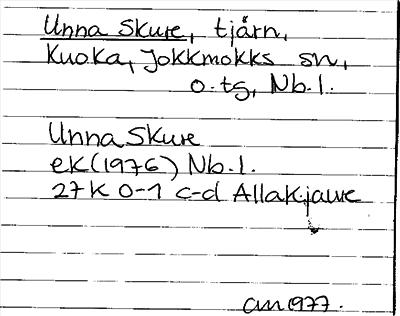 Unna Skure, tjärn,
Kuoka, Jokkmokks sn,
o. tg, Nb. l.
Unna Skure
ek (1976) Nb. l.
27K 0-1 c-d Allakjaure
am 1977.